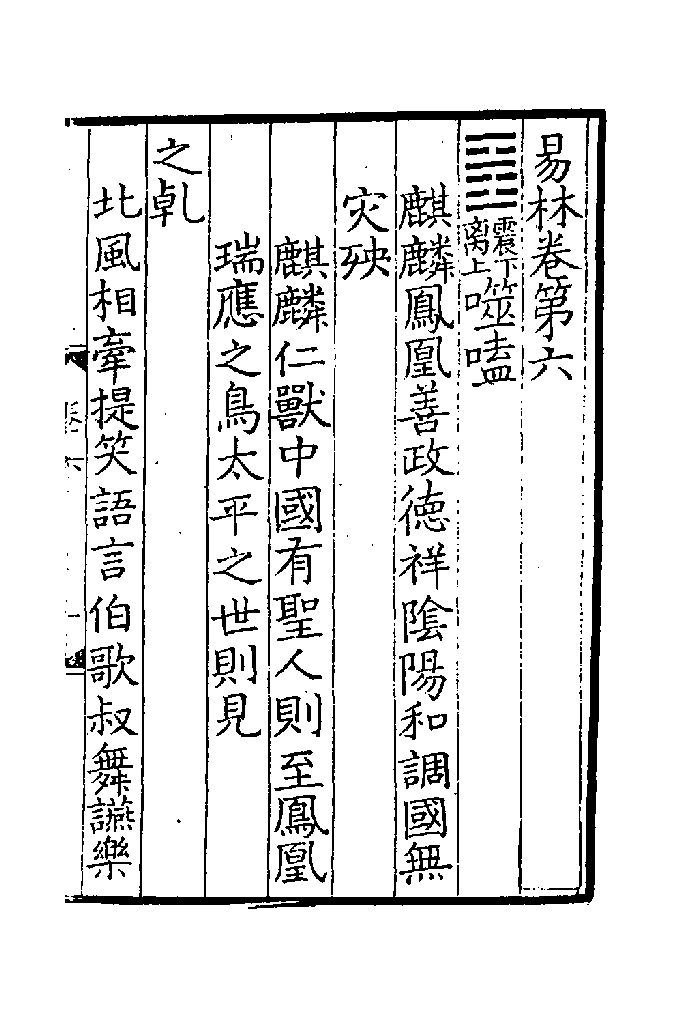 易林卷第六
䷔震下离上噬嗑
麒麟鳳凰善政德祥隂陽和調國無
灾殃
麒麟仁獸中國有聖人則至鳳凰
瑞應之鳥太平之世則見
之乹
北風相牽提笑語言伯歌叔舞讌樂